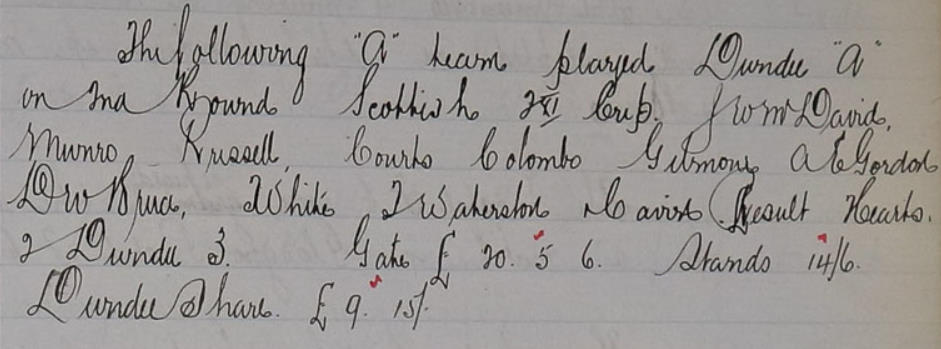 The following "A" team played Dundee "A"
in 2nd Round Scottish 2XI Cup. from David,
Munro, Russell, Courts Colombo Gilmour, A E Gordon
D W Bruce, White J Waterston Cairns (Result Hearts.
2 Dundee 3. Gate £ 20. 5 6. Stands 14/6.
Dundee Share. £ 9. 15/.